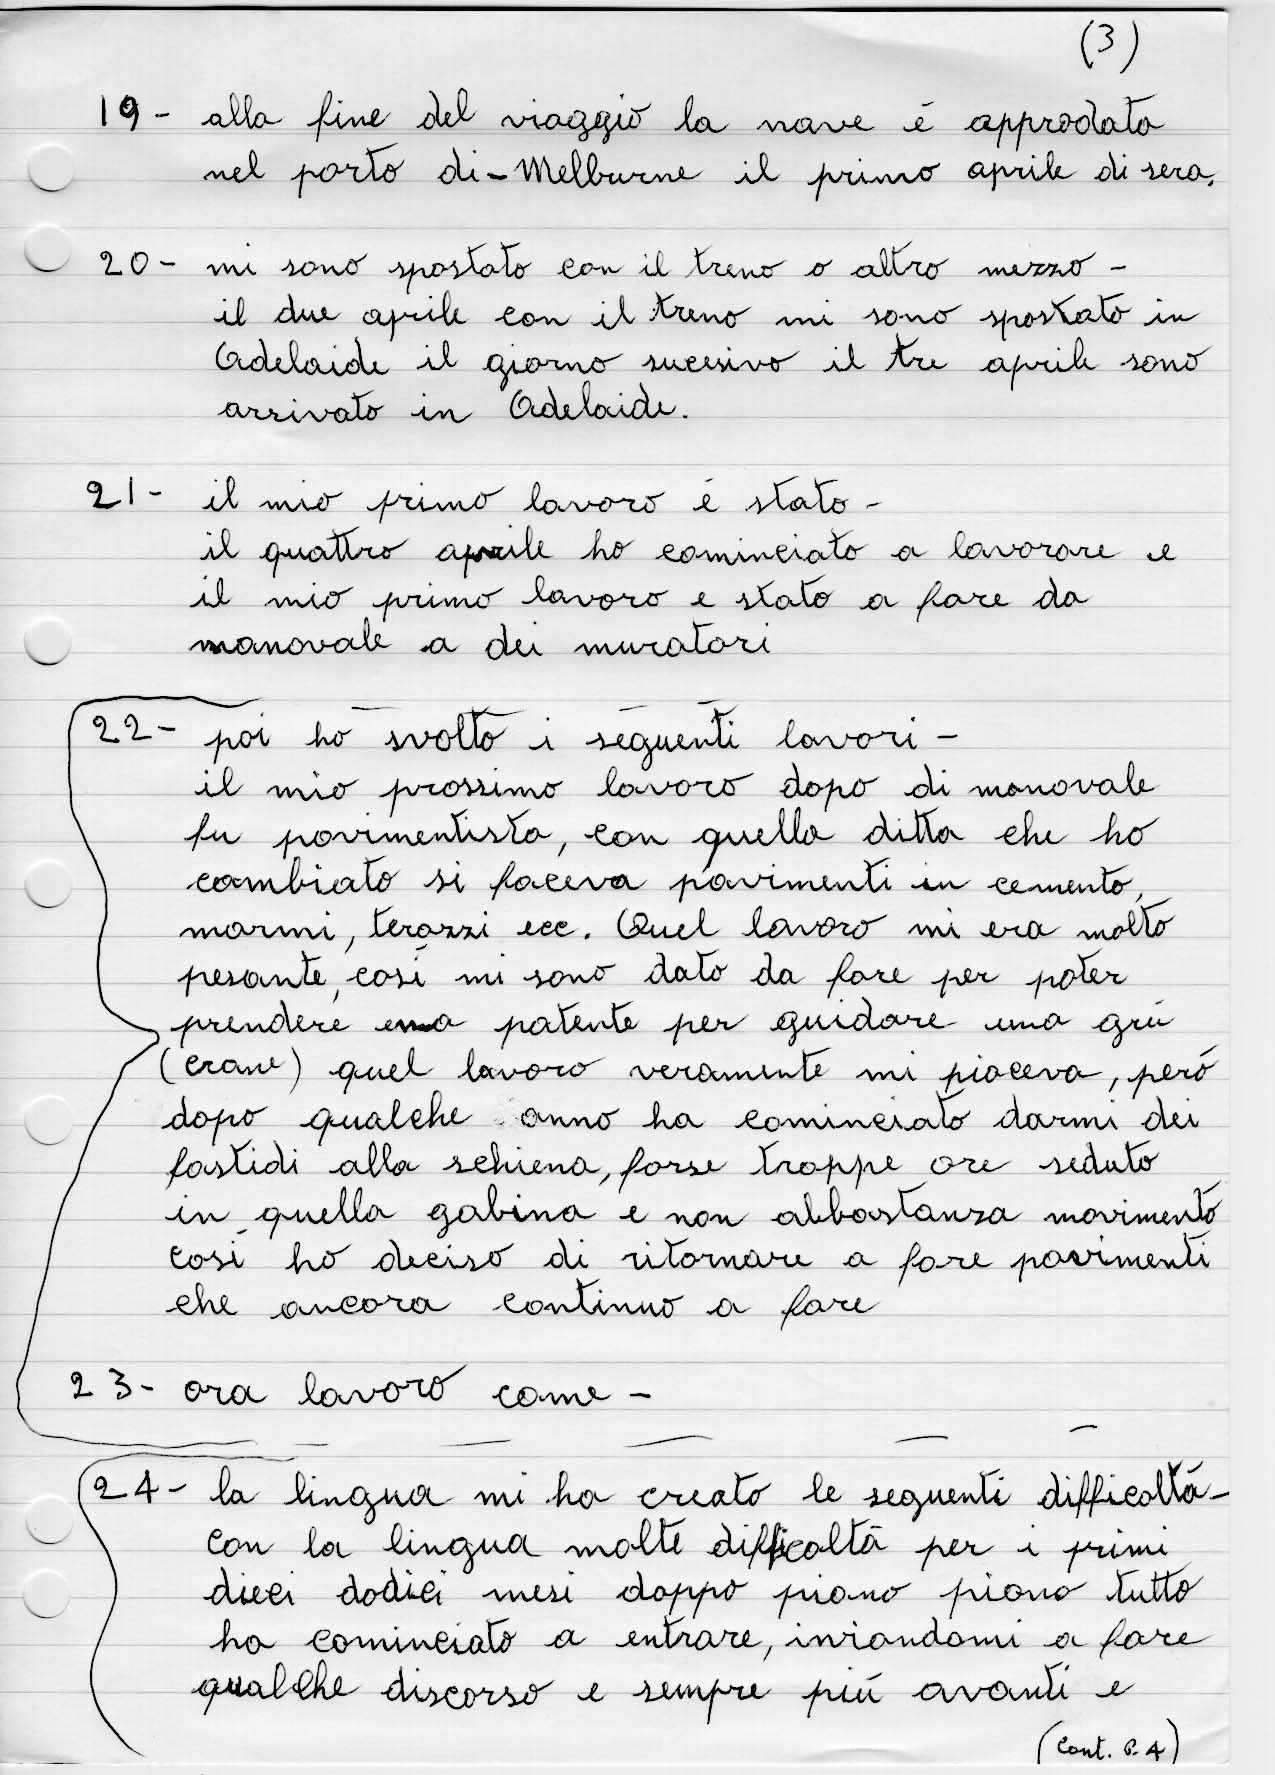 (3)
19- alla fine del viaggio la nave é approdata
nel porto di-Melburne il primo aprile di sera.
20- mi sono spostato con il treno o altro mezzo-
il due aprile con il treno mi sono spostato in
Adelaide il giorno sucesivo il tre aprile sono
arrivato in Adelaide.
21- il mio primo lavoro é stato-
il quattro aprile ho cominciato a lavorare e
il mio primo lavoro e stato a fare da
manovale a dei muratori
22- poi ho svolto i seguenti lavori-
il mio prossimo lavoro dopo di manovale
fu pavimentista, con quella ditta che ho
cambiato si faceva pavimenti in cemento,
marmi, terazzi ecc. Quel lavoro mi era molto
pesante, cosí mi sono dato da fare per poter
prendere una patente per guidare una grú
(crane) quel lavoro veramente mi piaceva, peró
dopo qualche anno ha cominciato darmi dei
fastidi alla schiena, forse troppe ore seduto
in quella gabina e non abbastanza movimento
cosí ho deciso di ritornare a fare pavimenti
che ancora continuo a fare
23- ora lavoro come-
24- la lingua mi ha creato le seguenti difficoltá-
con la lingua molte difficoltá per i primi
dieci dodici mesi doppo piano piano tutto
ha cominciato a entrare, iniziandomi a fare
qualche discorso e sempre piú avanti e
(Cont. P. 4)